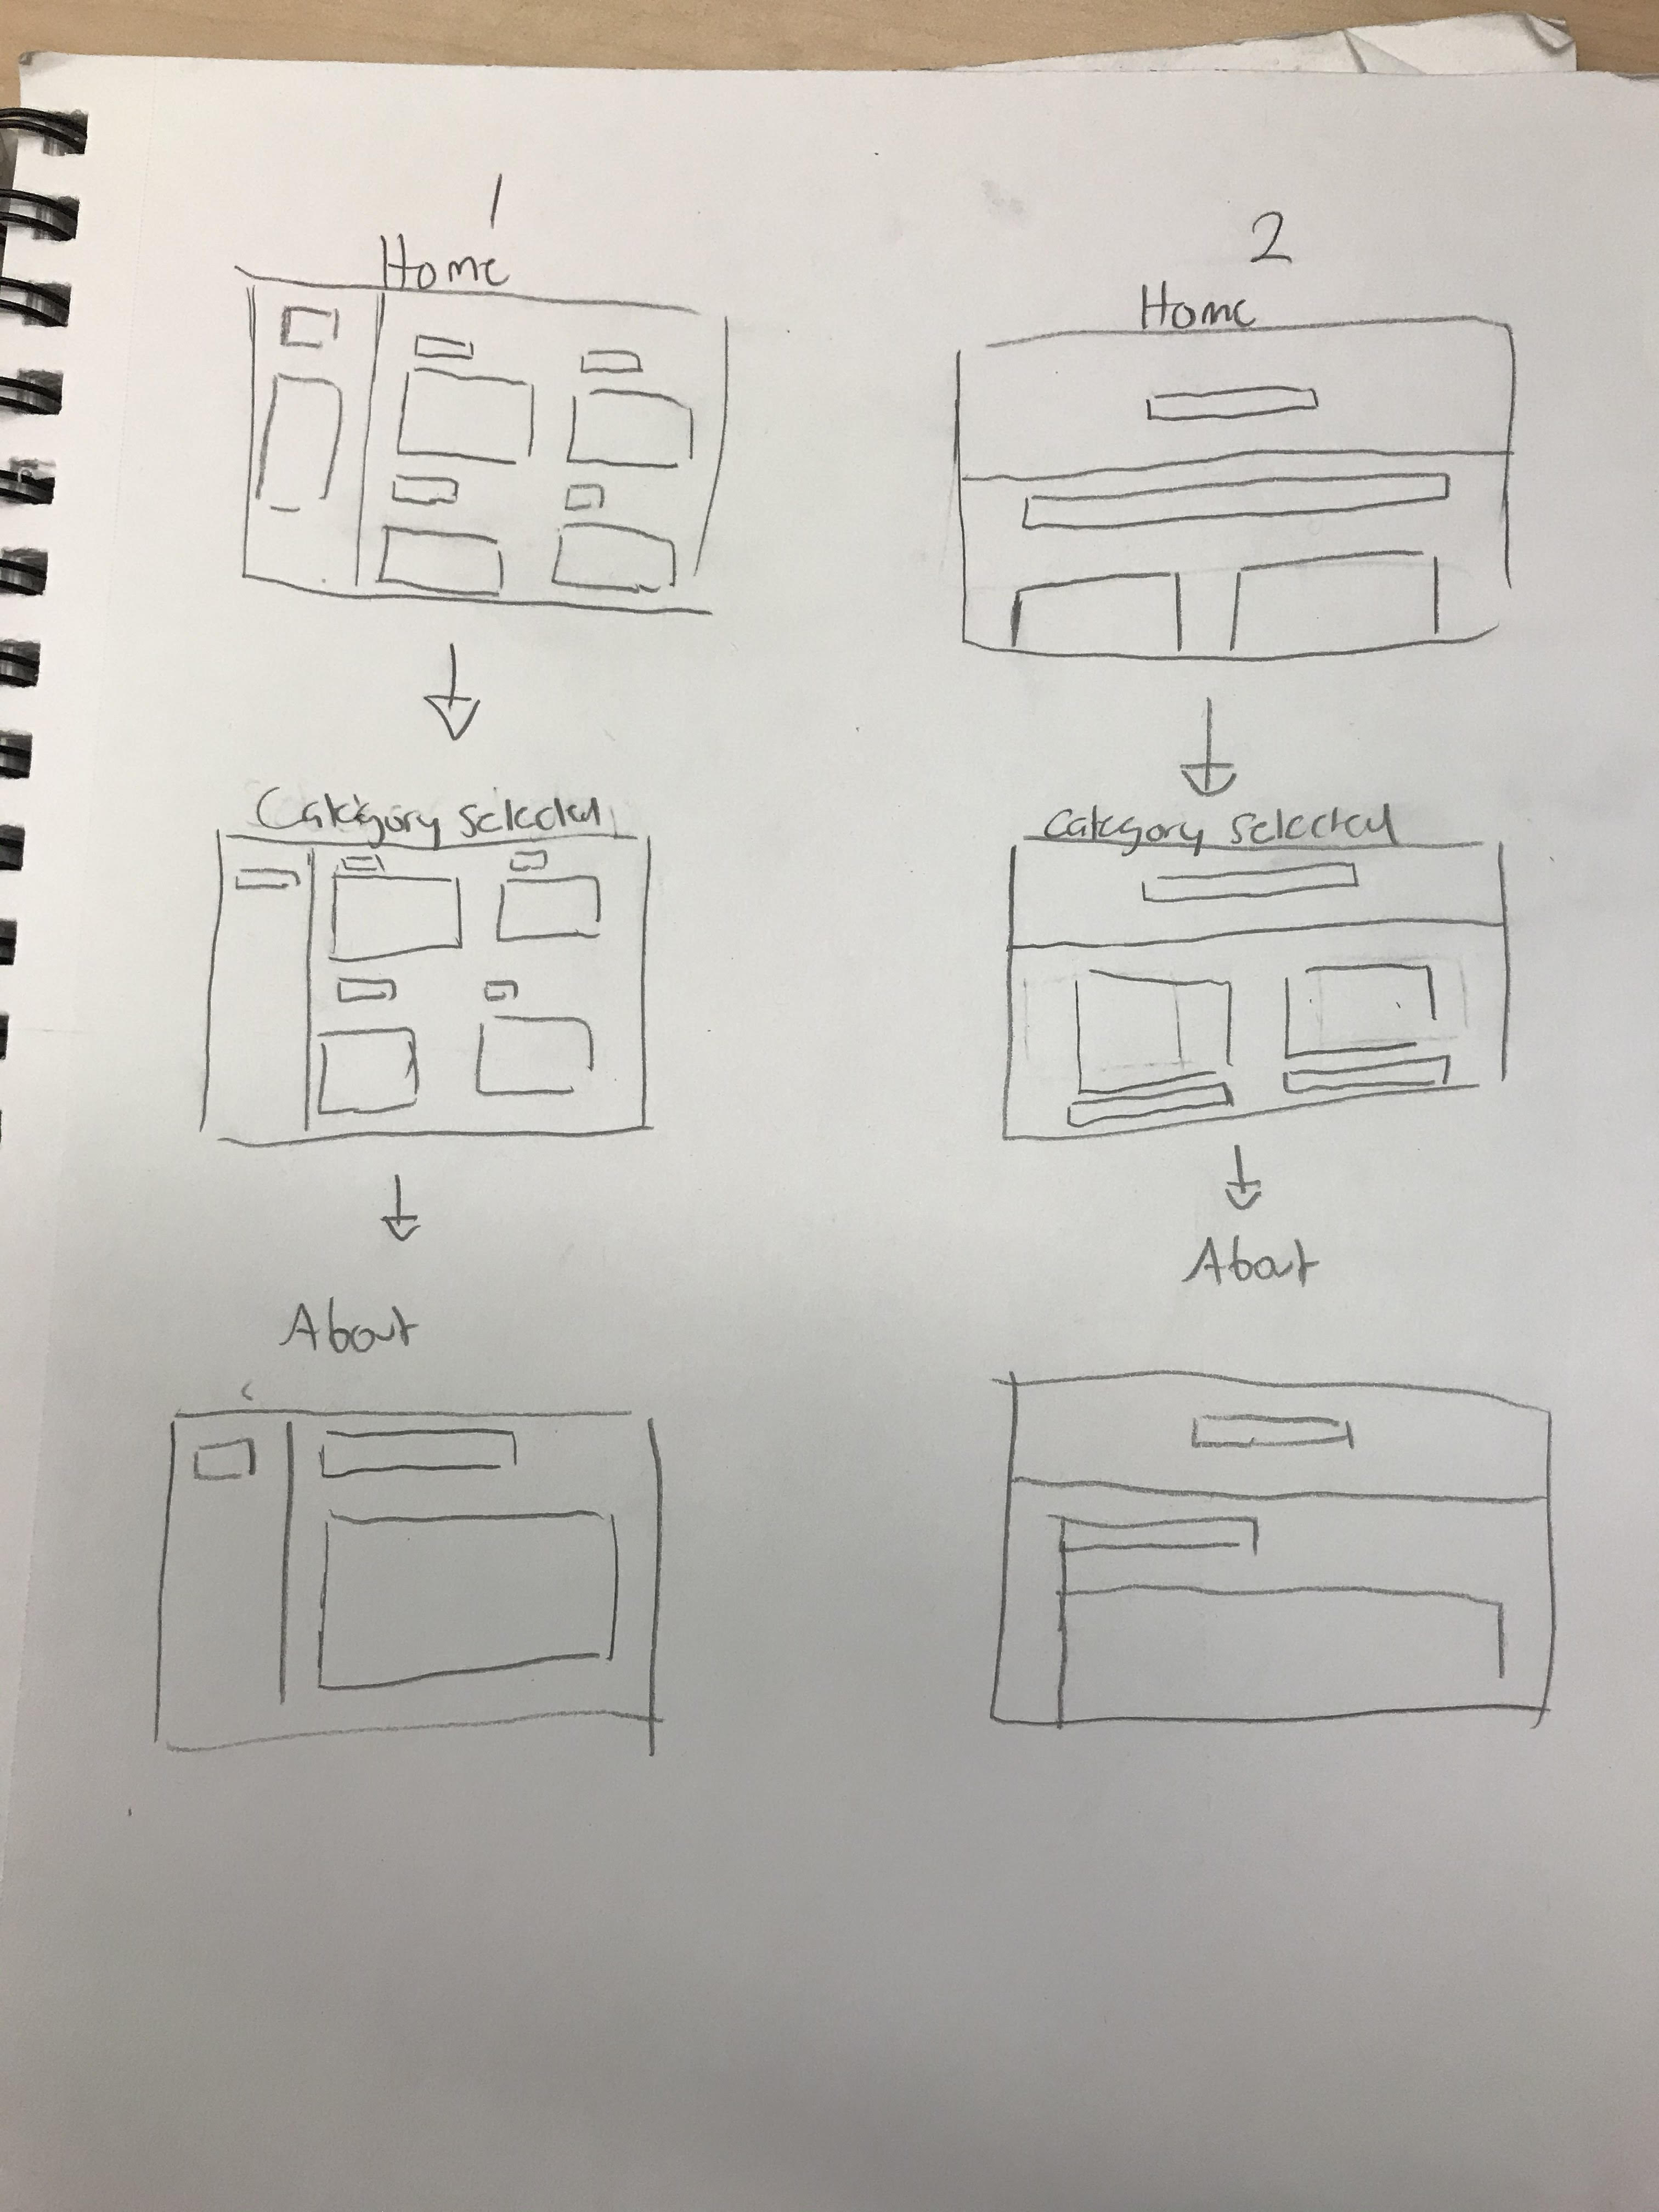 1
Home
Category selected
About
2
Home
Category selected
About